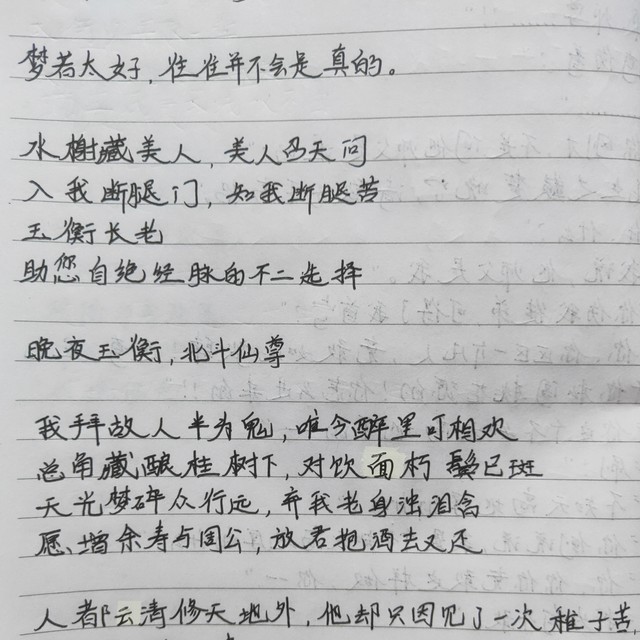 梦若太好,往往并不会是真的。
水榭藏美人,美人召天问
入我断腿门,知我断腿苦
玉衡长老
助您自绝经脉的不二选择
晚夜玉衡,北斗仙尊
我拜故人半为鬼,唯今醉里可相欢
总角藏酿桂树下,对饮面朽鬓已斑
天光梦碎众行远,弃我老身浊泪含
愿增余寿与周公,放君抱酒去又还
人都云清修天地外,他却只因见了一次稚子苦,